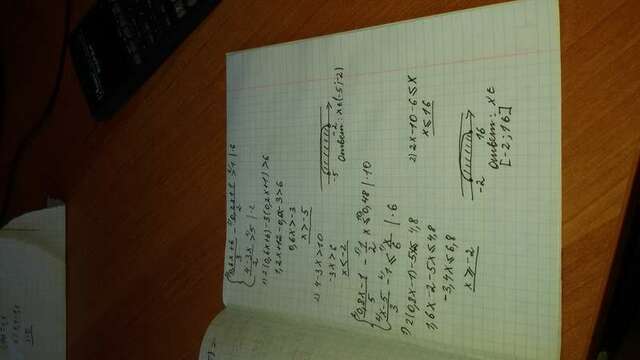 (0,6x+6)/3 - (0,2x+1)/2 > 1 | ·6
(4-3x)/2 > 5 | ·2
1) 2(0,6x+6)-3(0,2x+1)>6
1,2x+12-0,6x-3>6
0,6x>-3
x>-5
2) 4-3x>10
-3x>6
x<-2
-5 -2
Ответ: xє(-5;-2)
(0,8x-1)/5 - 1/2 x ≤ 0,48 | ·10
(x-5)/3 - 1 ≤ x/6 | ·6
1) 2(0,8x-1)-5x≤ 4,8
1,6x-2-5x≤4,8
-3,4x≤6,8
x ≥ -2
2) 2x-10-6≤x
x≤16
-2 16
Ответ: xє
[-2;16]